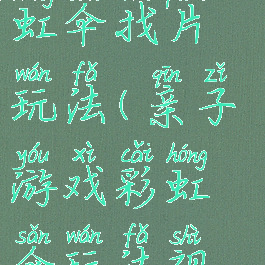 虹伞找片
wán fǎ qīn zǐ
玩法(亲子
yóu xì cǎi hóng
游戏彩虹
sǎn wán fǎ shì
伞玩法视